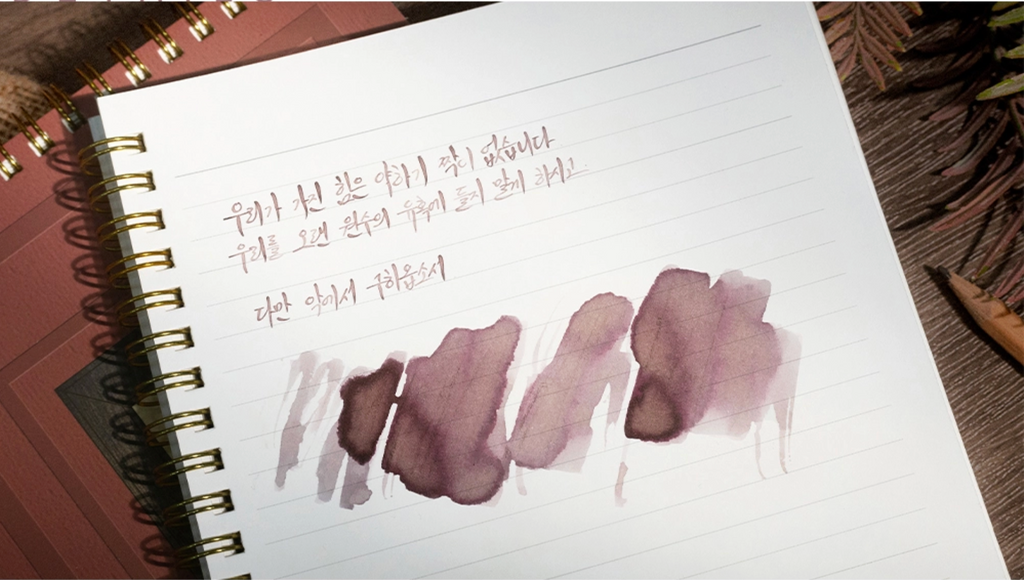 우리가 가진 힘은 약하기 짝이 없습니다
우리를 오랜 원수의 유혹에 들지 말게 하시고.
다만 악에서 구하옵소서